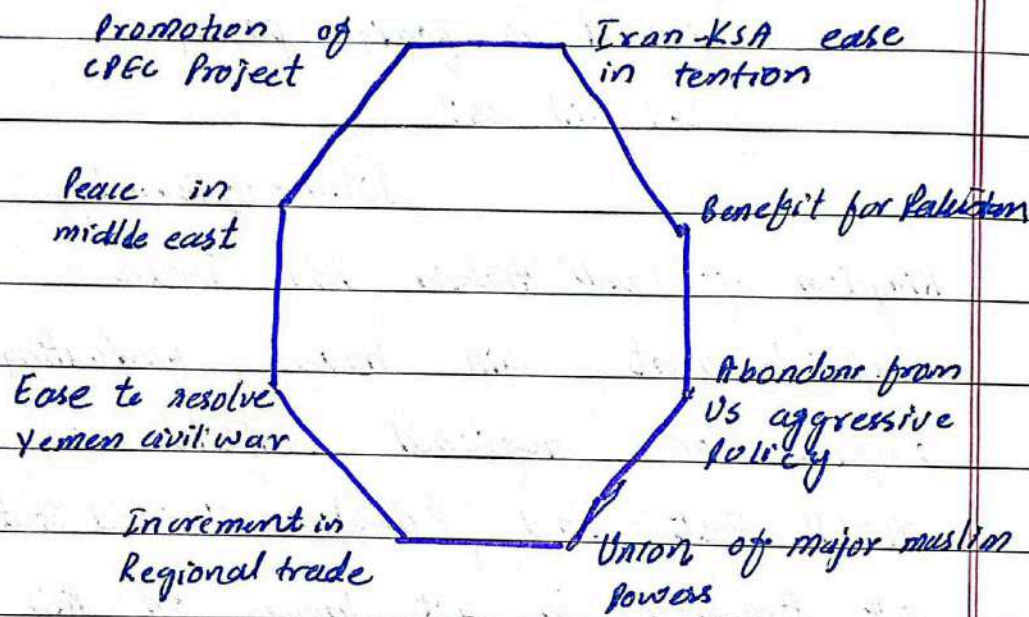 Promotion of
CPEC Project
Iran-KSA ease
in tention
Peace in
middle east
Benefit for Pakistan
Ease to resolve
Yemen civil war
Abondons from
US aggressive
Policy
Increment in
Regional trade
Union of major muslim
Powers